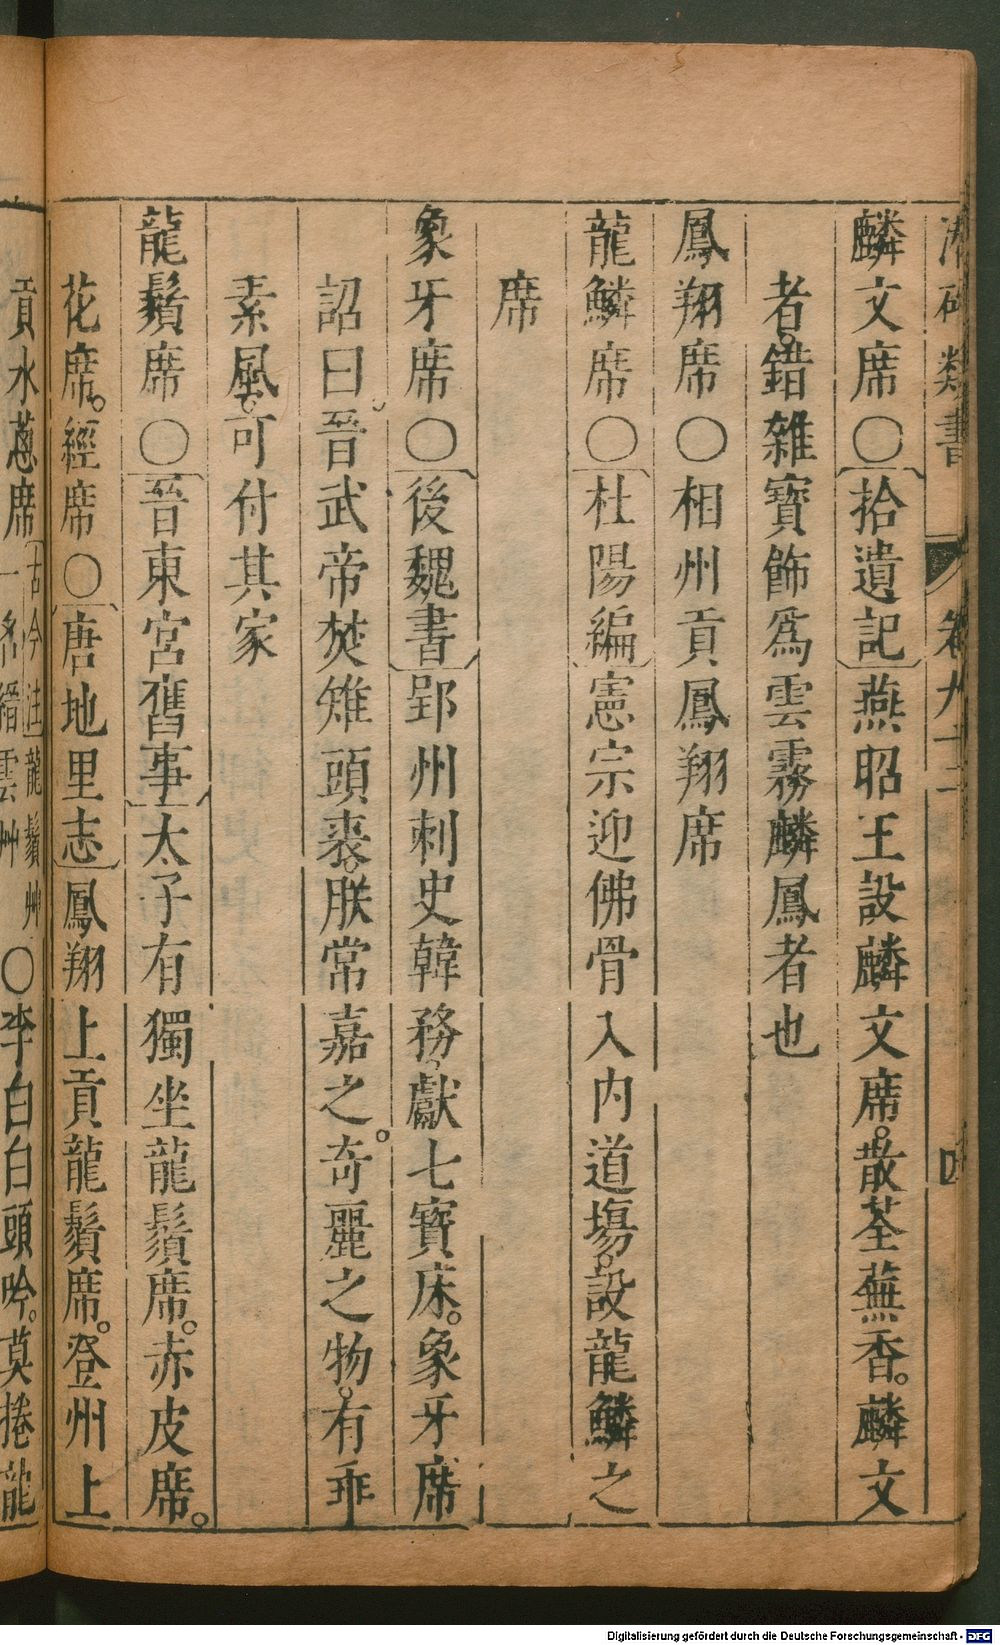 類書 卷九十三 四
麟文席〇拾遺記燕昭王設麟文席。散荃蕪香。麟文
者。錯雜寶飾爲雲霧麟鳳者也
鳳翔席〇相州貢鳳翔席
龍鱗席〇杜陽編憲宗迎佛骨入内道塲。設龍鱗之
席
象牙席〇後魏書郢州刺史韓務。獻七寶床。象牙席
詔曰晉武帝焚雉頭裘。朕常嘉之。奇麗之物。有乖
素風。可付其家
龍鬚席〇晉東宮舊事太子有獨坐龍鬚席。赤皮席。
花席。經席〇唐地里志鳳翔上貢龍鬚席。登州上
貢水蔥席古今注龍鬚艸一名縉雲艸〇李白白頭吟。莫捲龍
Digitalisierung gefördert durch die Deutsche Forschungsgemeinschaft - DFG